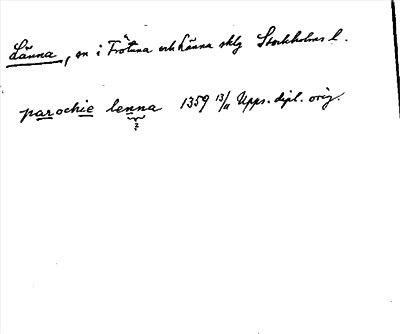 Länna, sn i Frötuna och Länna sklg Stockholms l.
parochie lenna 1359 13/11 Upps. dipl. orig.
?